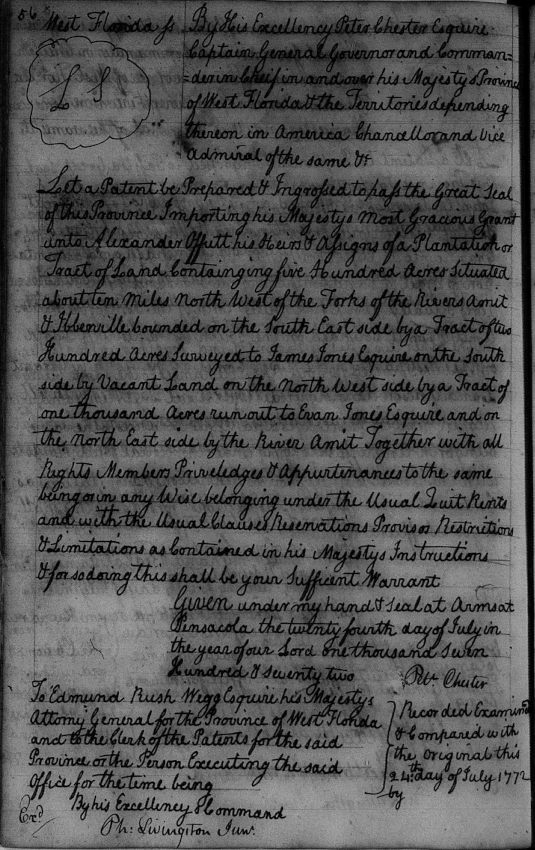 56
West Florida ss
L S
By His Excellency Peter Chester Esquire
Captain General Governor and Comman=
=der in Cheif in and over his Majestys Province
of West Florida & the Territories depending
thereon in America Chancellor and Vice
Admiral of the same &c
Let a Patent be Prepared & Ingrossed to pass the Great Seal
of this Province Importing his Majestys Most Gracious Grant
unto Alexander Offutt his Heirs & Assigns of a Plantation or
Tract of Land Containging five Hundred Acres Situated
about ten Miles North West of the Forks of the Rivers Amit
& Ibberville bounded on the South East side by a Tract of two
Hundred Acres Surveyed to James Jones Esquire on the South
side by Vacant Land on the North West side by a Tract of
one thousand Acres run out to Evan Jones Esquire and on
the North East side by the River Amit Together with all
Rights Members Priveledges & Appurtinances to the same
being or in any Wise belonging under the Usual Quit Rents
and with the Usual Clauses Reservations Provisos Restrictions
& Limitations as Contained in his Majestys Instructions
& for so doing this shall be your Suffient Warrant
Given under my hand & Seal at Arms at
Pensacola the twenty fourth day of July in
the year of our Lord One thousand Seven
Hundred & seventy two
Petr Chester
To Edmund Rush Wegg Esquire his Majestys
Attorny General for the Province of West Florida
and to the Clerk of the Patents for the said
Province or the Person Executing the said
Office for the time being
By his Excellency's Command
Exd
Ph: Livingston Junr.
Recorded Examind
& Compared with
the Original this
24th day of July 1772
by